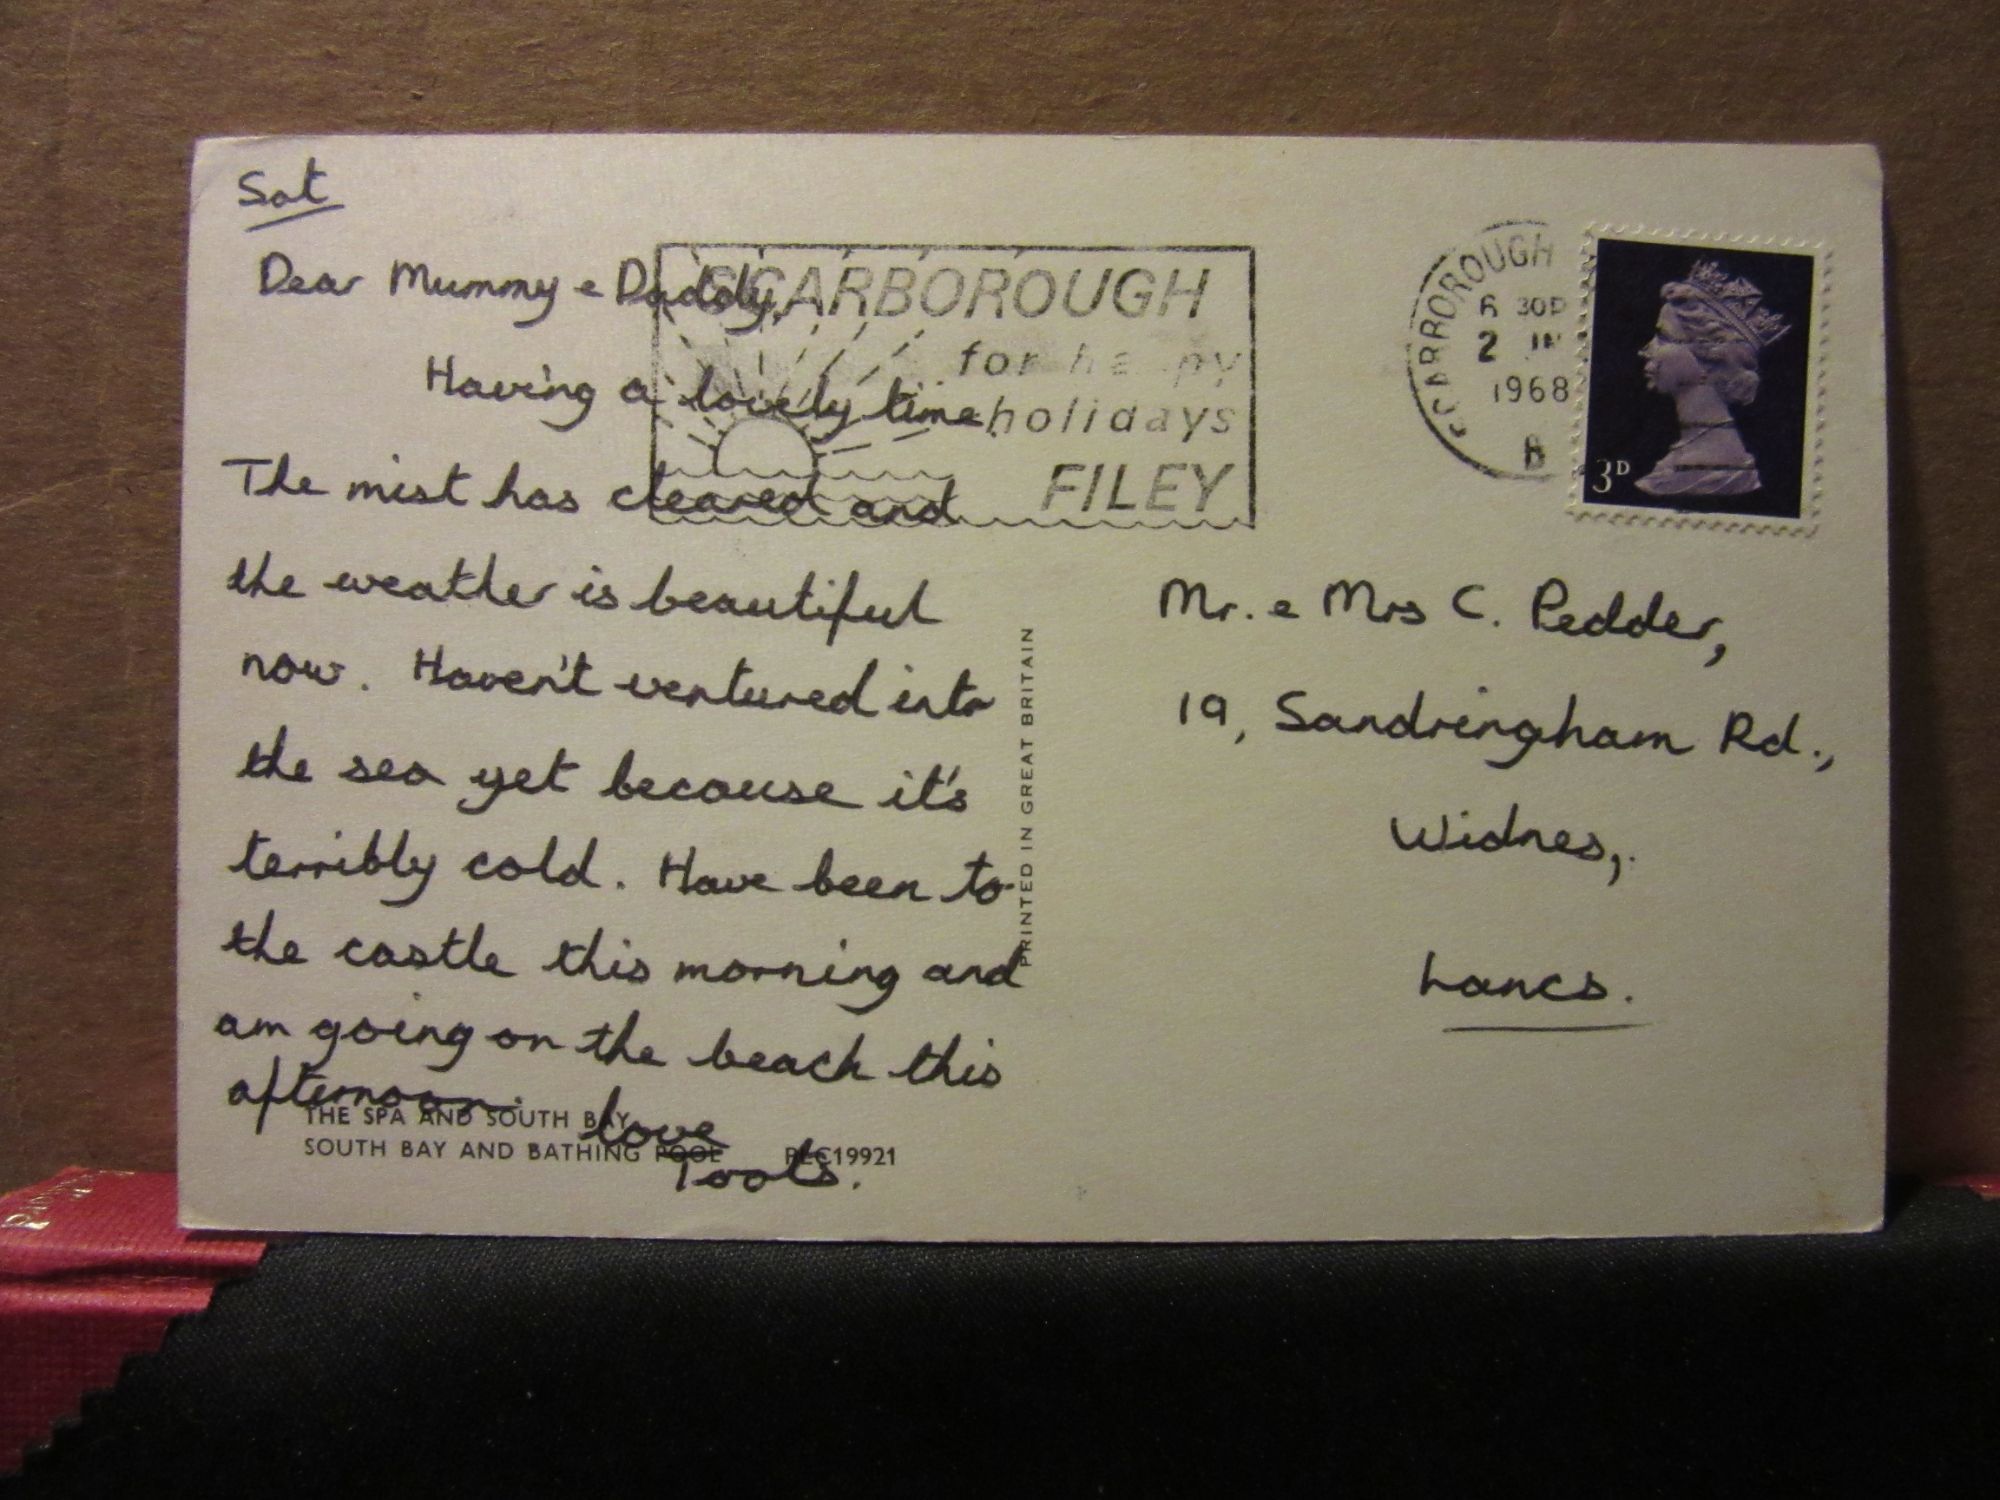 Sat
Dear Mummy & Daddy,
Having a lovely time.
The mist has cleared and
the weather is beautiful
now. Haven't ventured into
the sea yet because it's
terribly cold. Have been to
the castle this morning and
am going on the beach this
afternoon.
love
Toots.
THE SPA AND SOUTH BAY
SOUTH BAY AND BATHING POOL PLC19921
PRINTED IN GREAT BRITAIN
SCARBOROUGH
for happy
holidays
FILEY
SCARBOROUGH
6 30P
2 JN
1968
3D
Mr. & Mrs C. Pedder,
19, Sandringham Rd.,
Widnes,
Lancs.